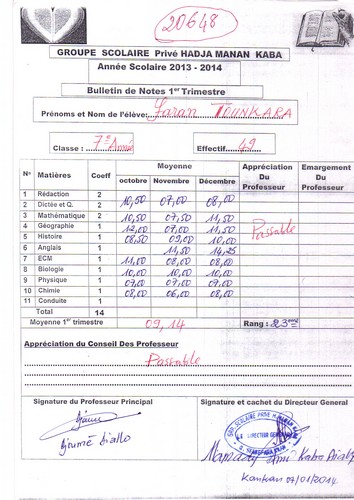 20648
GROUPE SCOLAIRE Privé HADJA MANAN KABA
Année Scolaire 2013 - 2014
Bulletin de Notes 1er Trimestre
Prénoms et Nom de l'élève: Faran TOUNKARA
Classe : 7è Année Effectif 49
N° Matières Coeff Moyenne Appréciation Du Professeur Emargement Du Professeur
octobre Novembre Décembre
1 Rédaction 2
2 Dictée et Q. 2 10,50 07,00 08,00
3 Mathématique 2 10,50 07,50 11,50
4 Géographie 1 12,00 07,00 11,50 Passable
5 Histoire 1 08,50 09,00 10,00
6 Anglais 1 11,50 14,25
7 ECM 1 11,00 08,00 08,00
8 Biologie 1 10,00 10,00 10,00
9 Physique 1 07,00 07,00 07,00
10 Chimie 1 08,00 06,00 08,00
11 Conduite 1
Total 14
Moyenne 1er trimestre 09,14 Rang : 23ème
Appréciation du Conseil Des Professeur
Passable
Signature du Professeur Principal Signature et cachet du Directeur General
Djoumé Diallo
LE DIRECTEUR GENERAL
Kaba
Kankan 07/01/2014